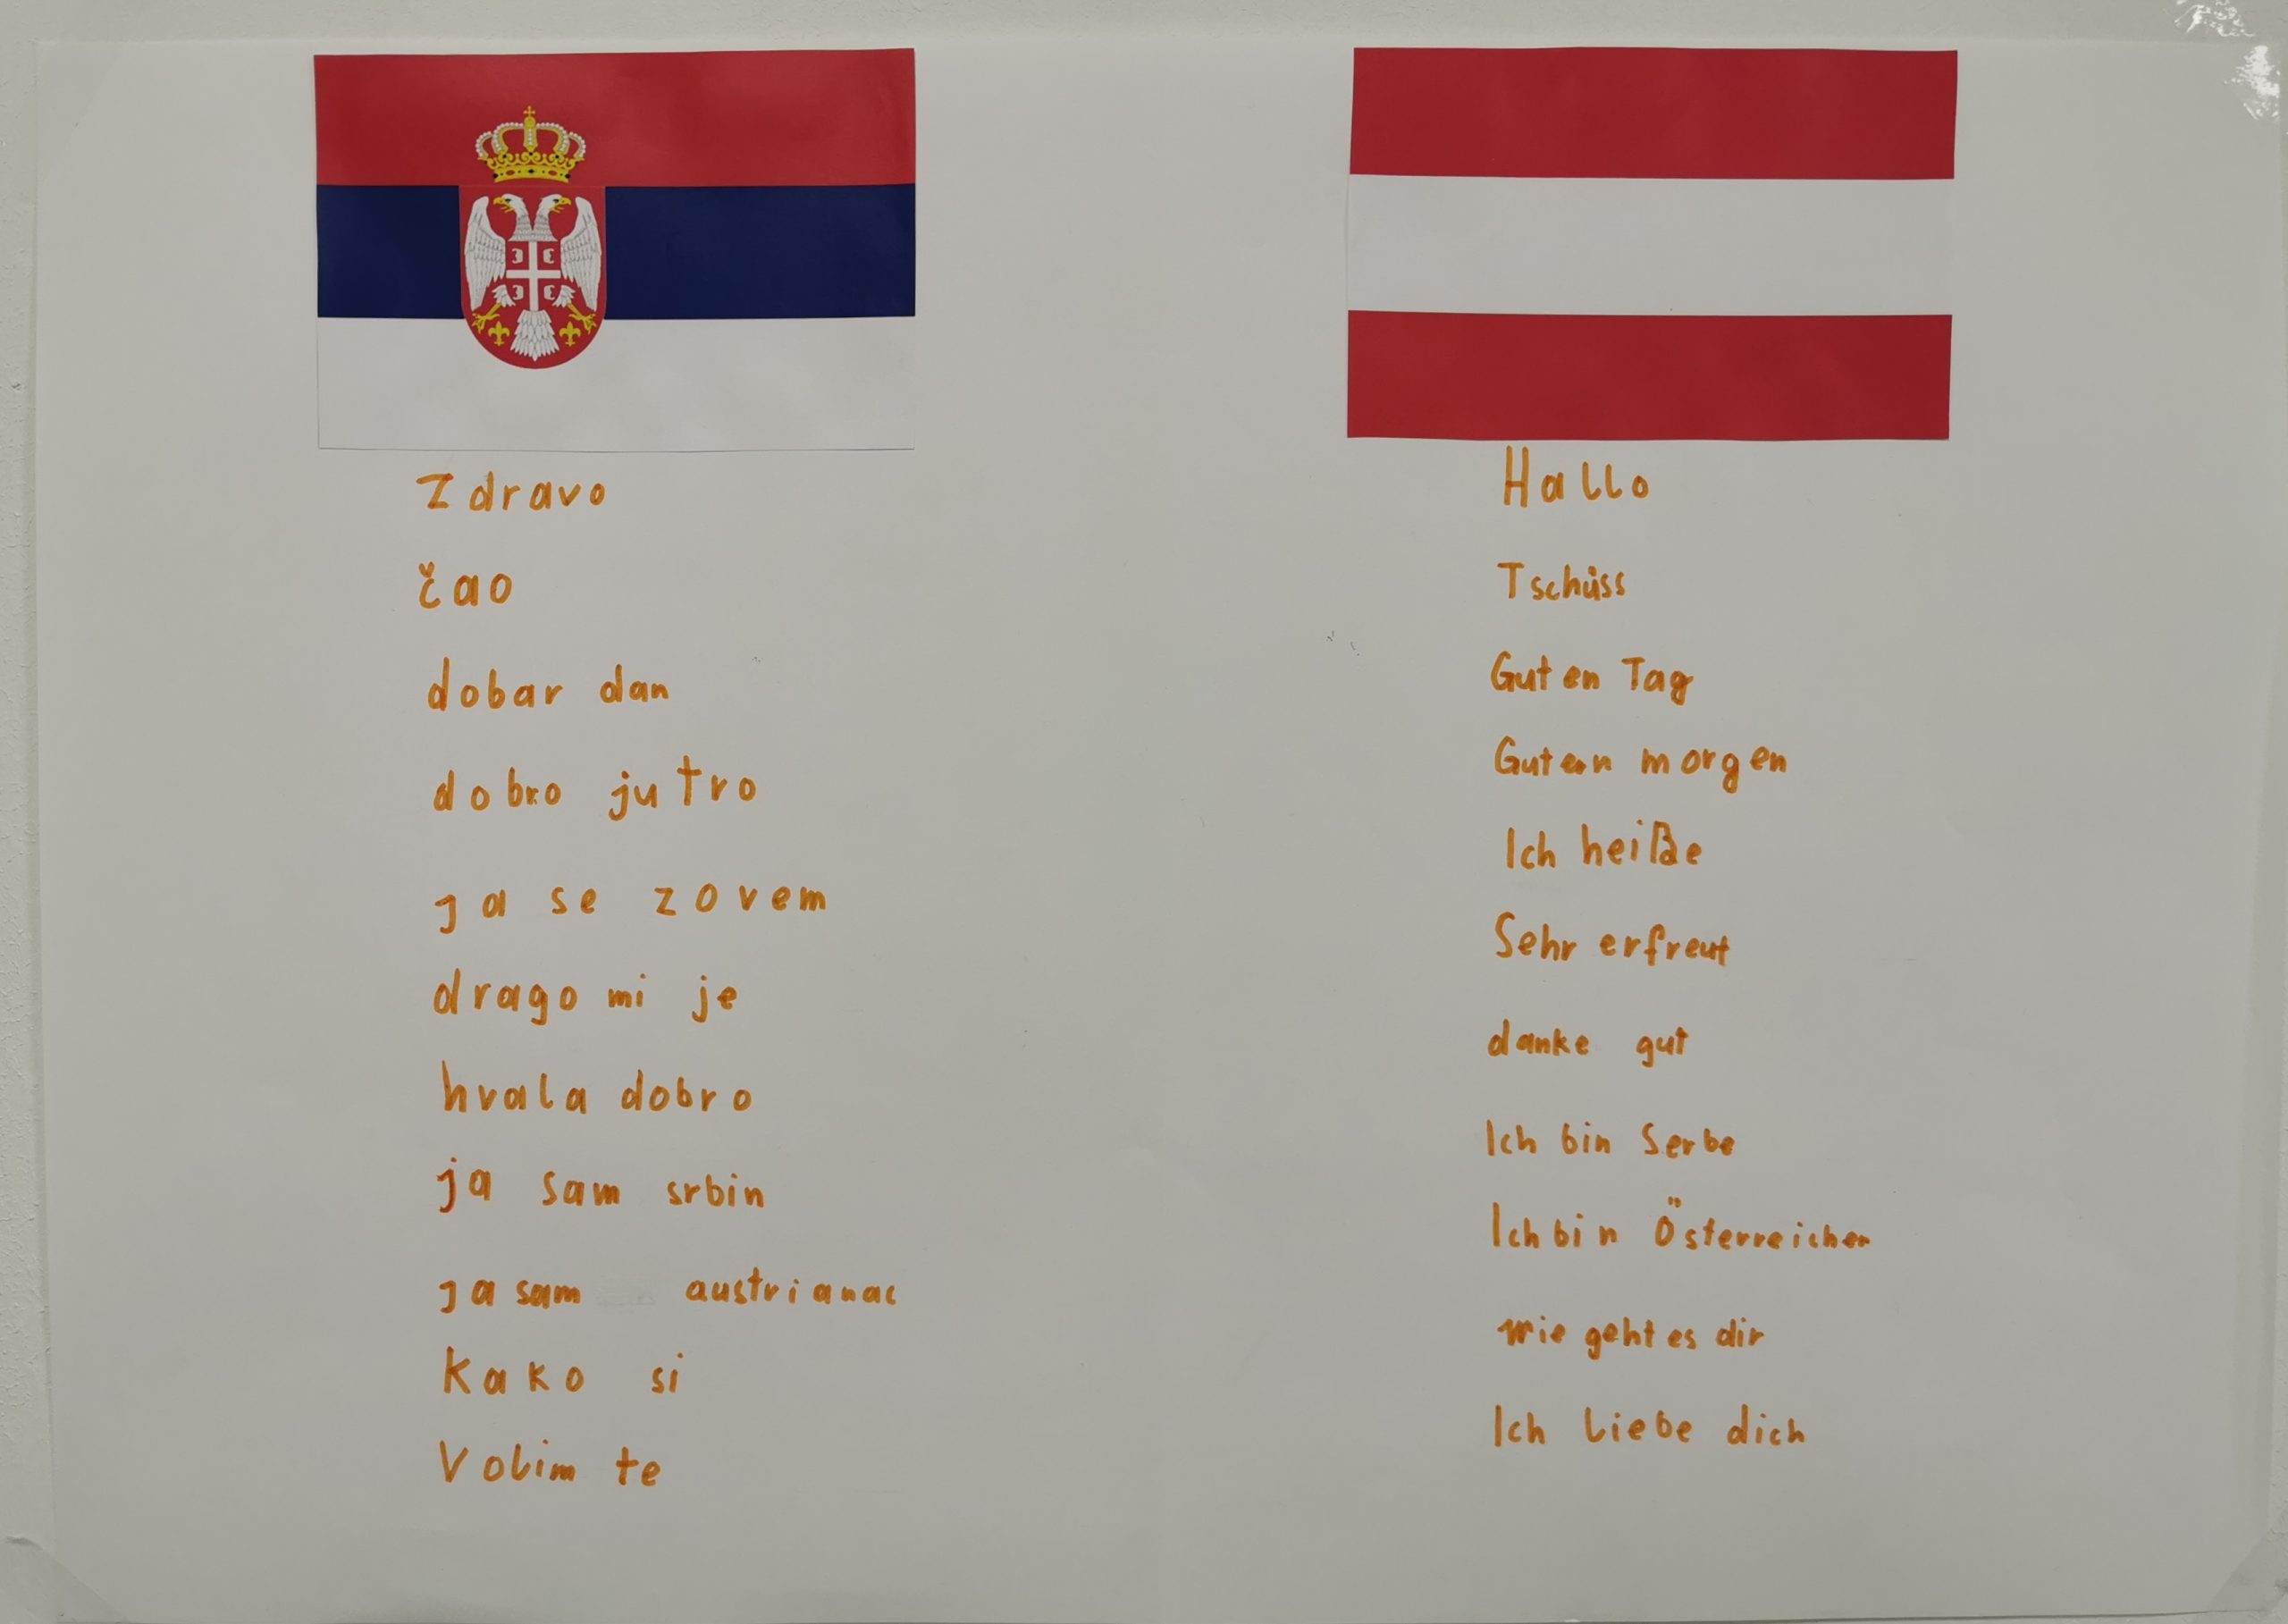 Zdravo
čao
dobar dan
dobro jutro
ja se zovem
drago mi je
hvala dobro
ja sam srbin
ja sam austrianac
Kako si
Volim te
Hallo
Tschüss
Guten Tag
Guten morgen
Ich heiße
Sehr erfreut
danke gut
Ich bin Serbe
Ich bin Österreicher
wie geht es dir
Ich liebe dich